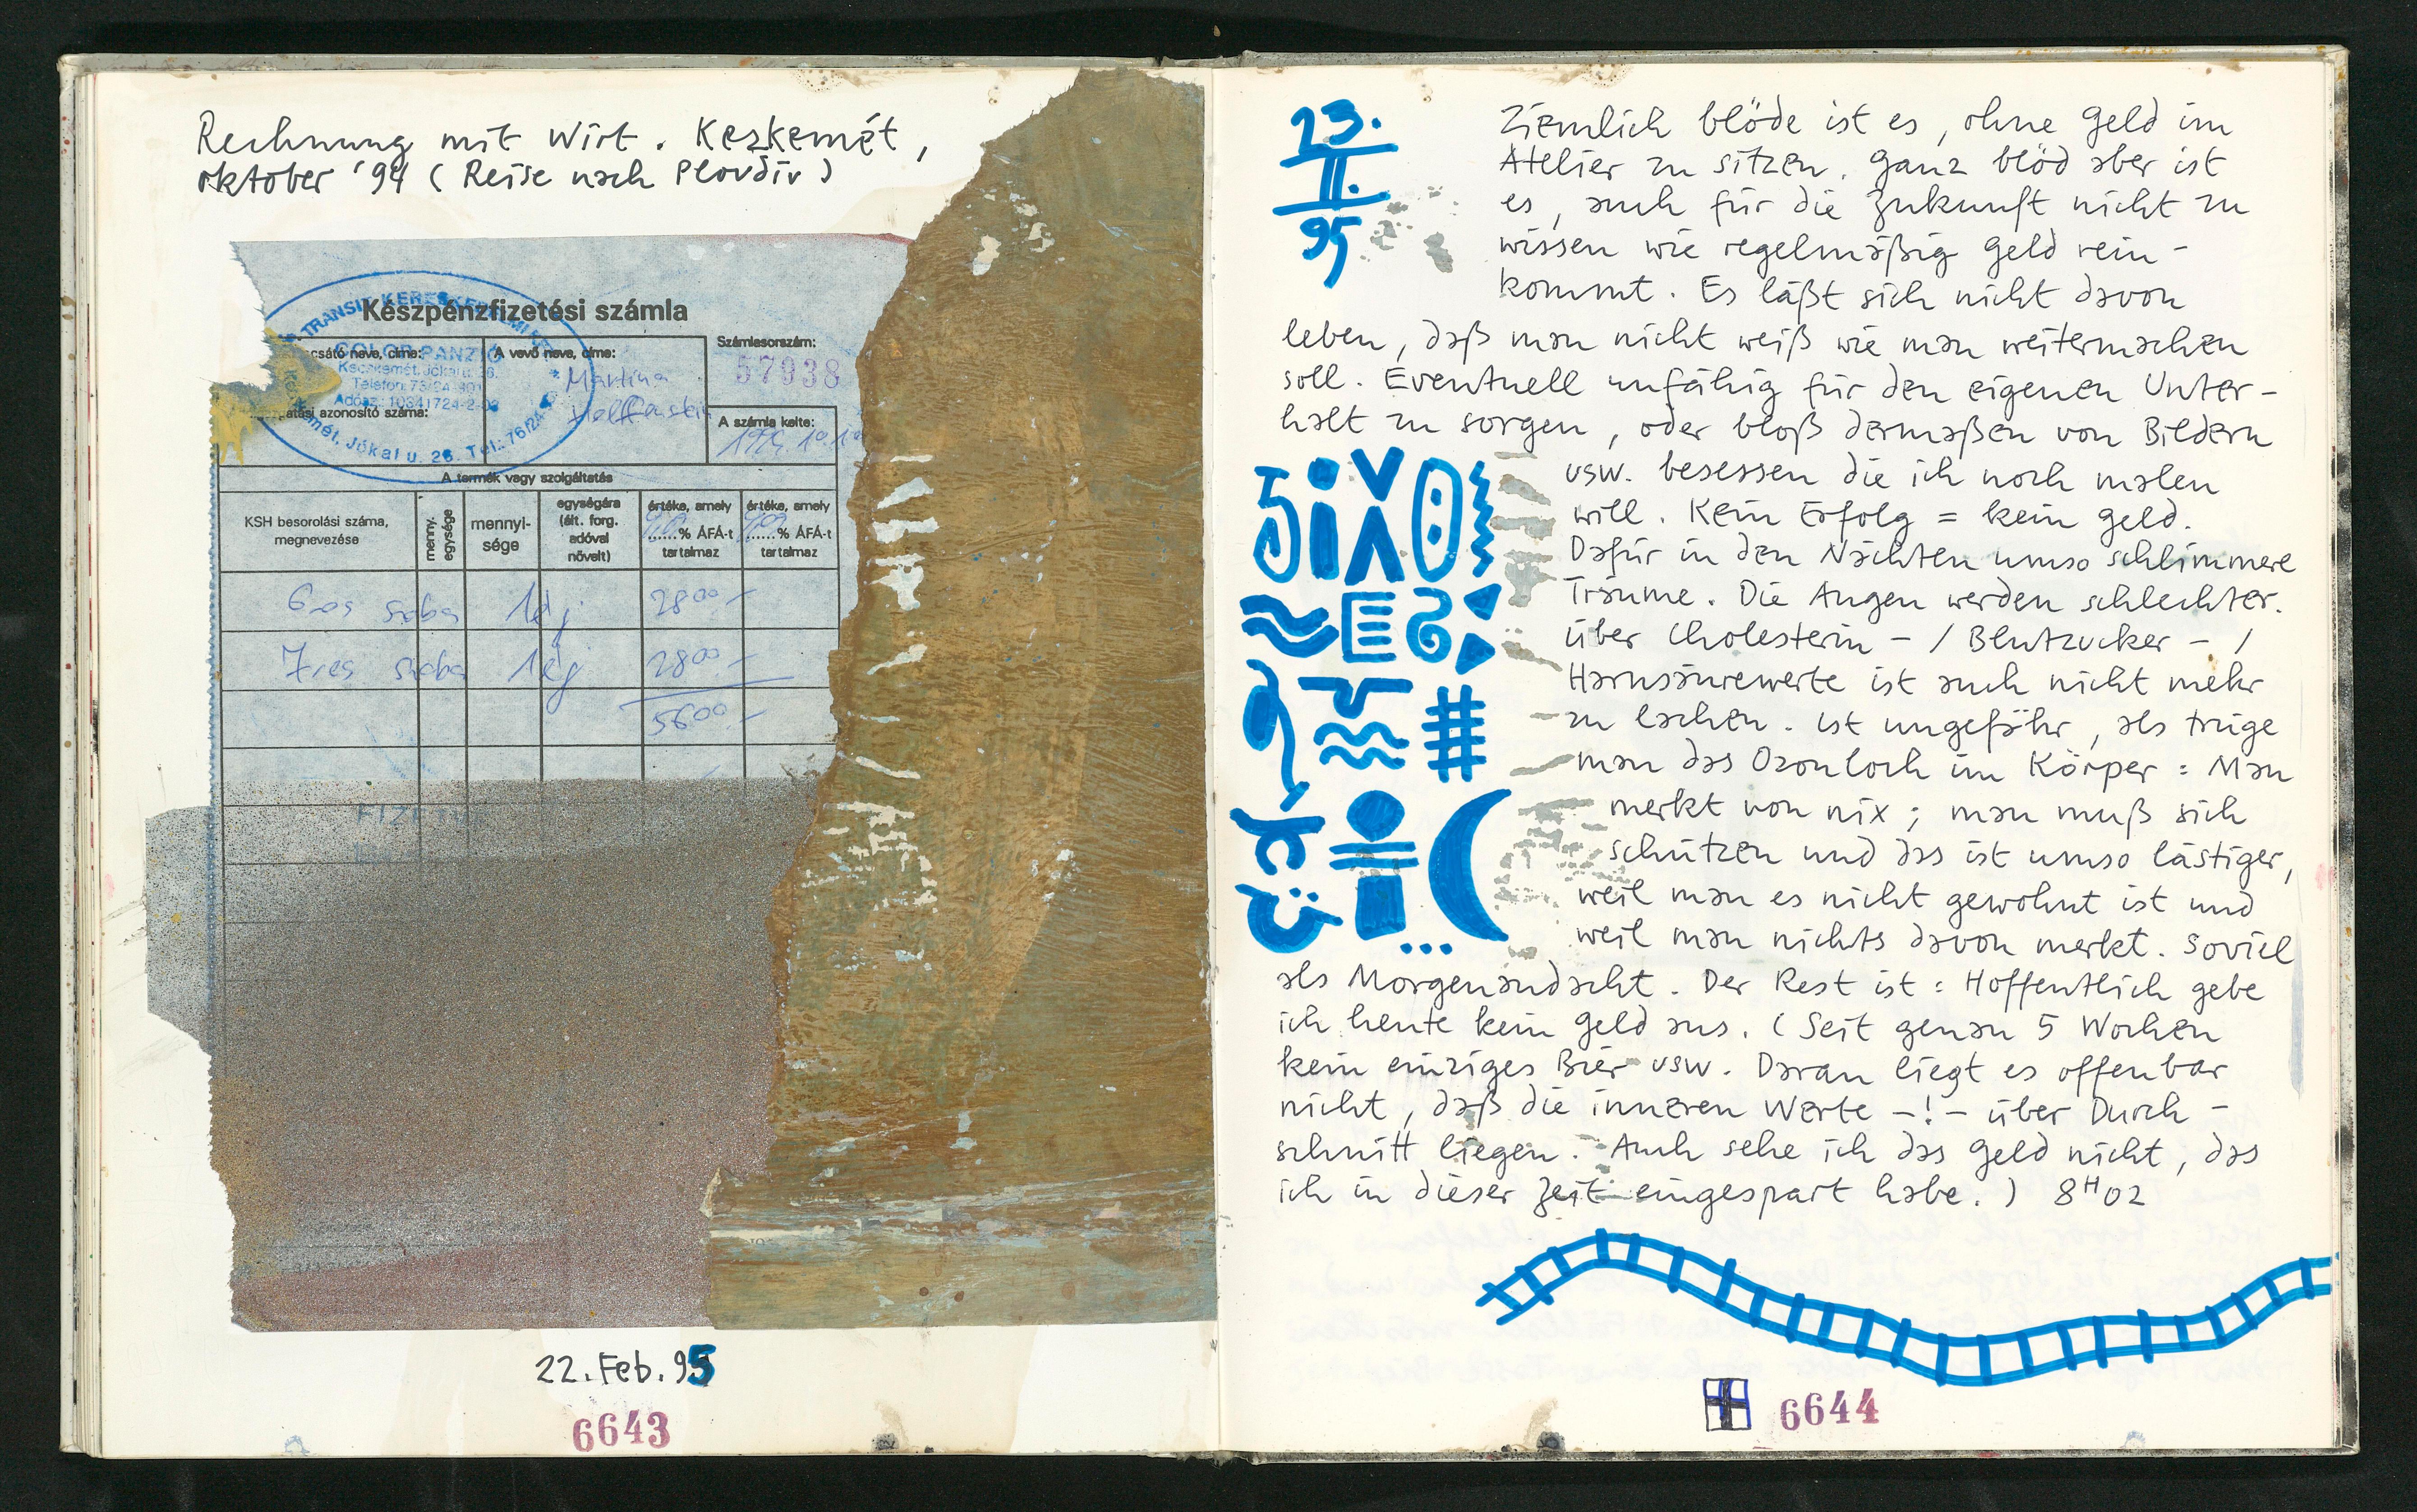 Rechnung mit Wirt. Kezkemét,
oktober '94 (Reise nach Plovdiv)
Készpénzfizetési számla
TRANSIT KERESKEDELMI
COLOR PANZIÓ
Kecskemét, Jókai u. 26.
Telefon: 76/24-901
Adósz.: 10341724-2-03
Jókai u. 26. Tel.: 76/24-
csátó neve, címe:
atási azonosító száma:
A vevő neve, címe:
Martina
Számlasorszám:
57938
A számla kelte:
A termék vagy szolgáltatás
KSH besorolási száma,
megnevezése
menny.
egysége
mennyi-
sége
egységára
(ált. forg.
adóval
növelt)
értéke, amely
......% ÁFÁ-t
tartalmaz
értéke, amely
......% ÁFÁ-t
tartalmaz
6-os szoba 1 éj 2800.-
7-es szoba 1 éj 2800.-
5600.-
FIZETVE
22. Feb. 95
6643
23.
II.
95
Ziemlich blöde ist es, ohne Geld im
Atelier zu sitzen. Ganz blöd aber ist
es, auch für die Zukunft nicht zu
wissen wie regelmäßig Geld rein-
kommt. Es läßt sich nicht davon
leben, daß man nicht weiß wie man weitermachen
soll. Eventuell unfähig für den eigenen Unter-
halt zu sorgen, oder bloß dermaßen von Bildern
usw. besessen die ich noch malen
will. Kein Erfolg = kein Geld.
Dafür in den Nächten umso schlimmere
Träume. Die Augen werden schlechter.
über Cholesterin - / Blutzucker - /
Harnsäurewerte ist auch nicht mehr
zu lachen. ist ungefähr, als trüge
man das Ozonloch im Körper: Man
merkt von nix; man muß sich
schützen und das ist umso lästiger,
weil man es nicht gewohnt ist und
weil man nichts davon merkt. Soviel
als Morgenandacht. Der Rest ist: Hoffentlich gebe
ich heute kein Geld aus. (Seit genau 5 Wochen
kein einziges Bier usw. Daran liegt es offenbar
nicht, daß die inneren Werte -!- über Durch-
schnitt liegen. Auch sehe ich das Geld nicht, das
ich in dieser Zeit eingespart habe.) 8H02
6644